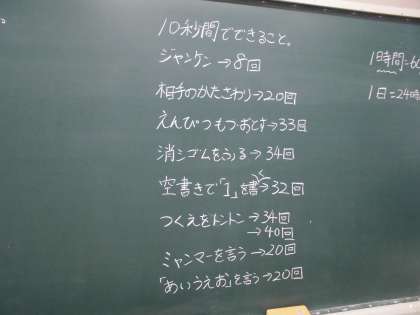 10秒間でできること。
ジャンケン→8回
相手のかたさわり→20回
えんぴつもつ・おとす→33回
消シゴムをふる→34回
空書きで「1」を書く→32回
つくえをトントン→34回
→40回
ミャンマーを言う→20回
「あいうえお」を言う→20回
1時間=60
1日=24時